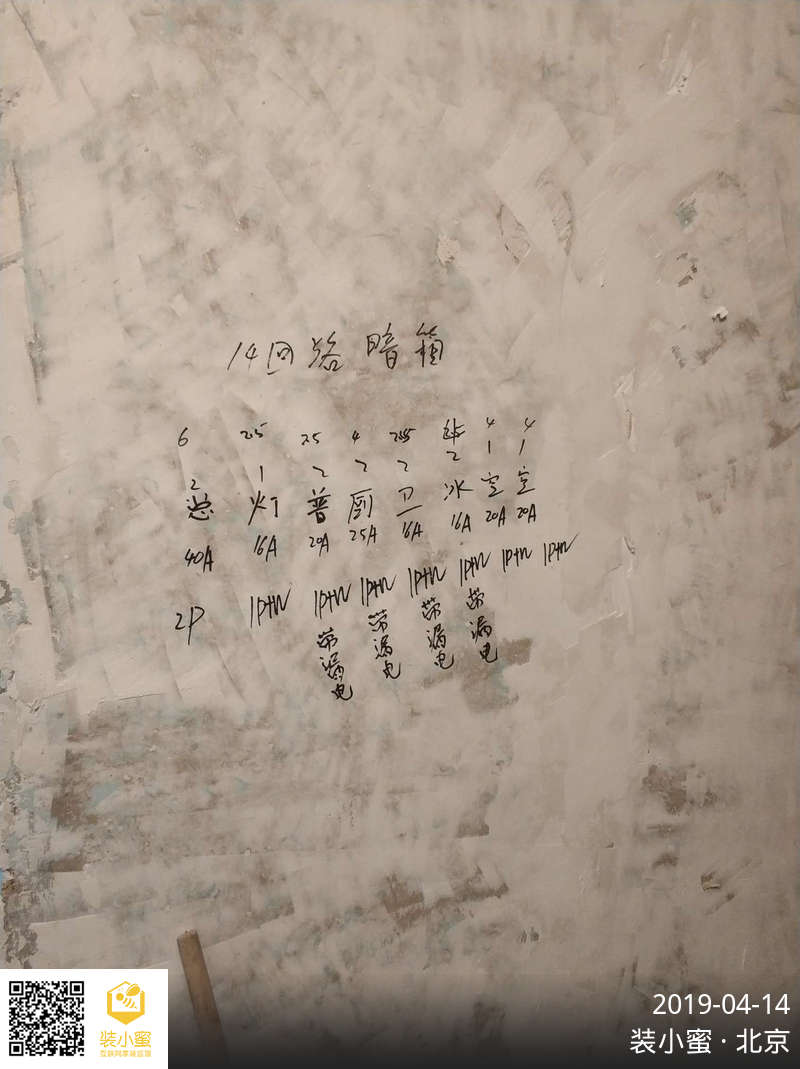 14回路暗箱
6 2.5 2.5 4 2.5 4 4
2 1 2 2 2 2 1 1
总 灯 普 厨 卫 冰 空 空
40A 16A 20A 25A 16A 16A 20A 20A
2P 1P+N 1P+N 1P+N 1P+N 1P+N 1P+N 1P+N
带漏电 带漏电 带漏电 带漏电
装小蜜
2019-04-14
装小蜜·北京